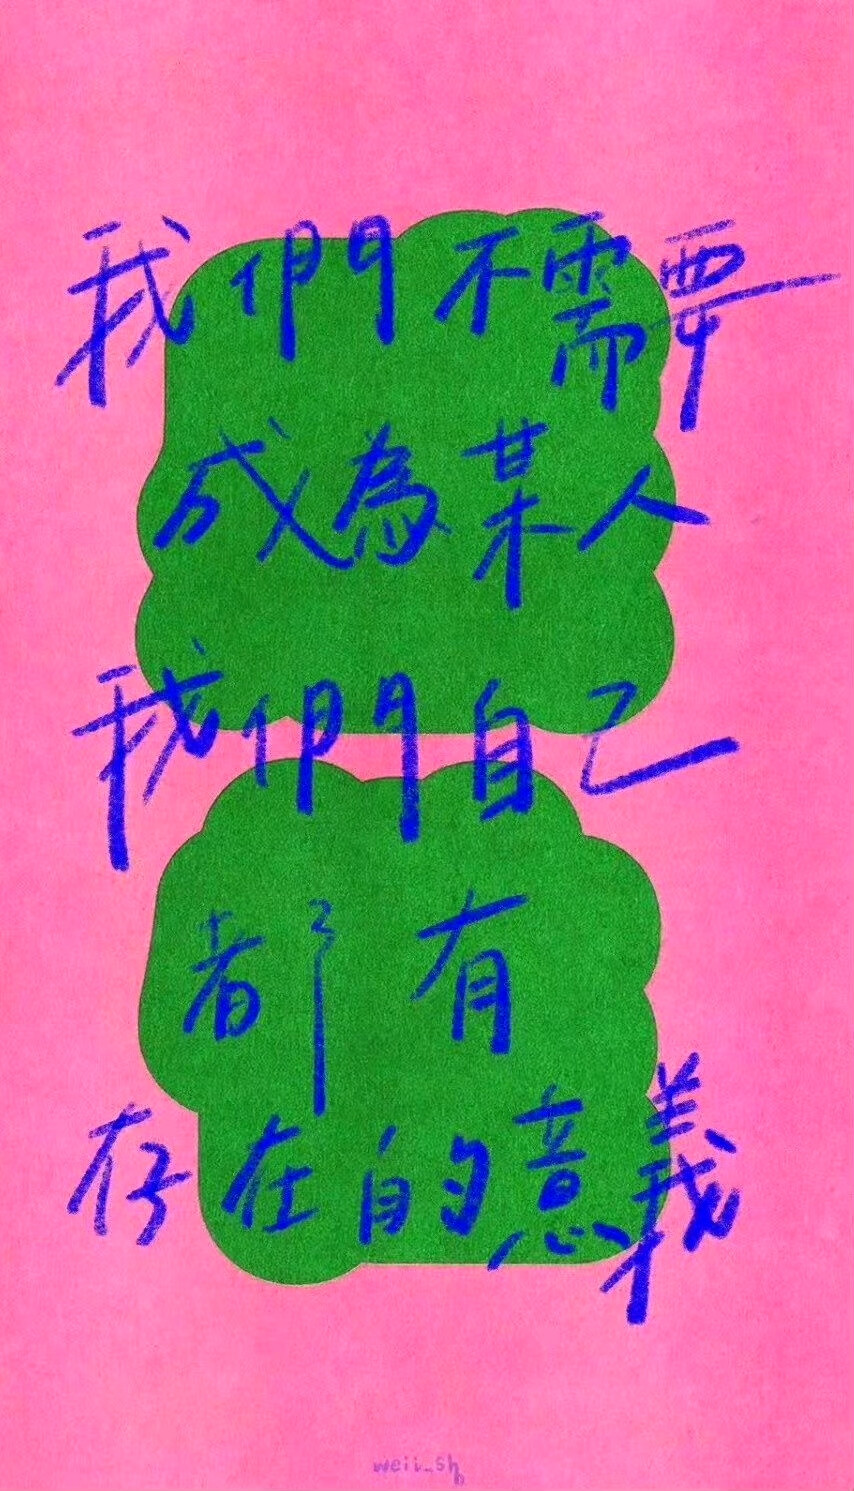 我們不需要
成為某人
我們自己
都有
存在的意義
weii_sh